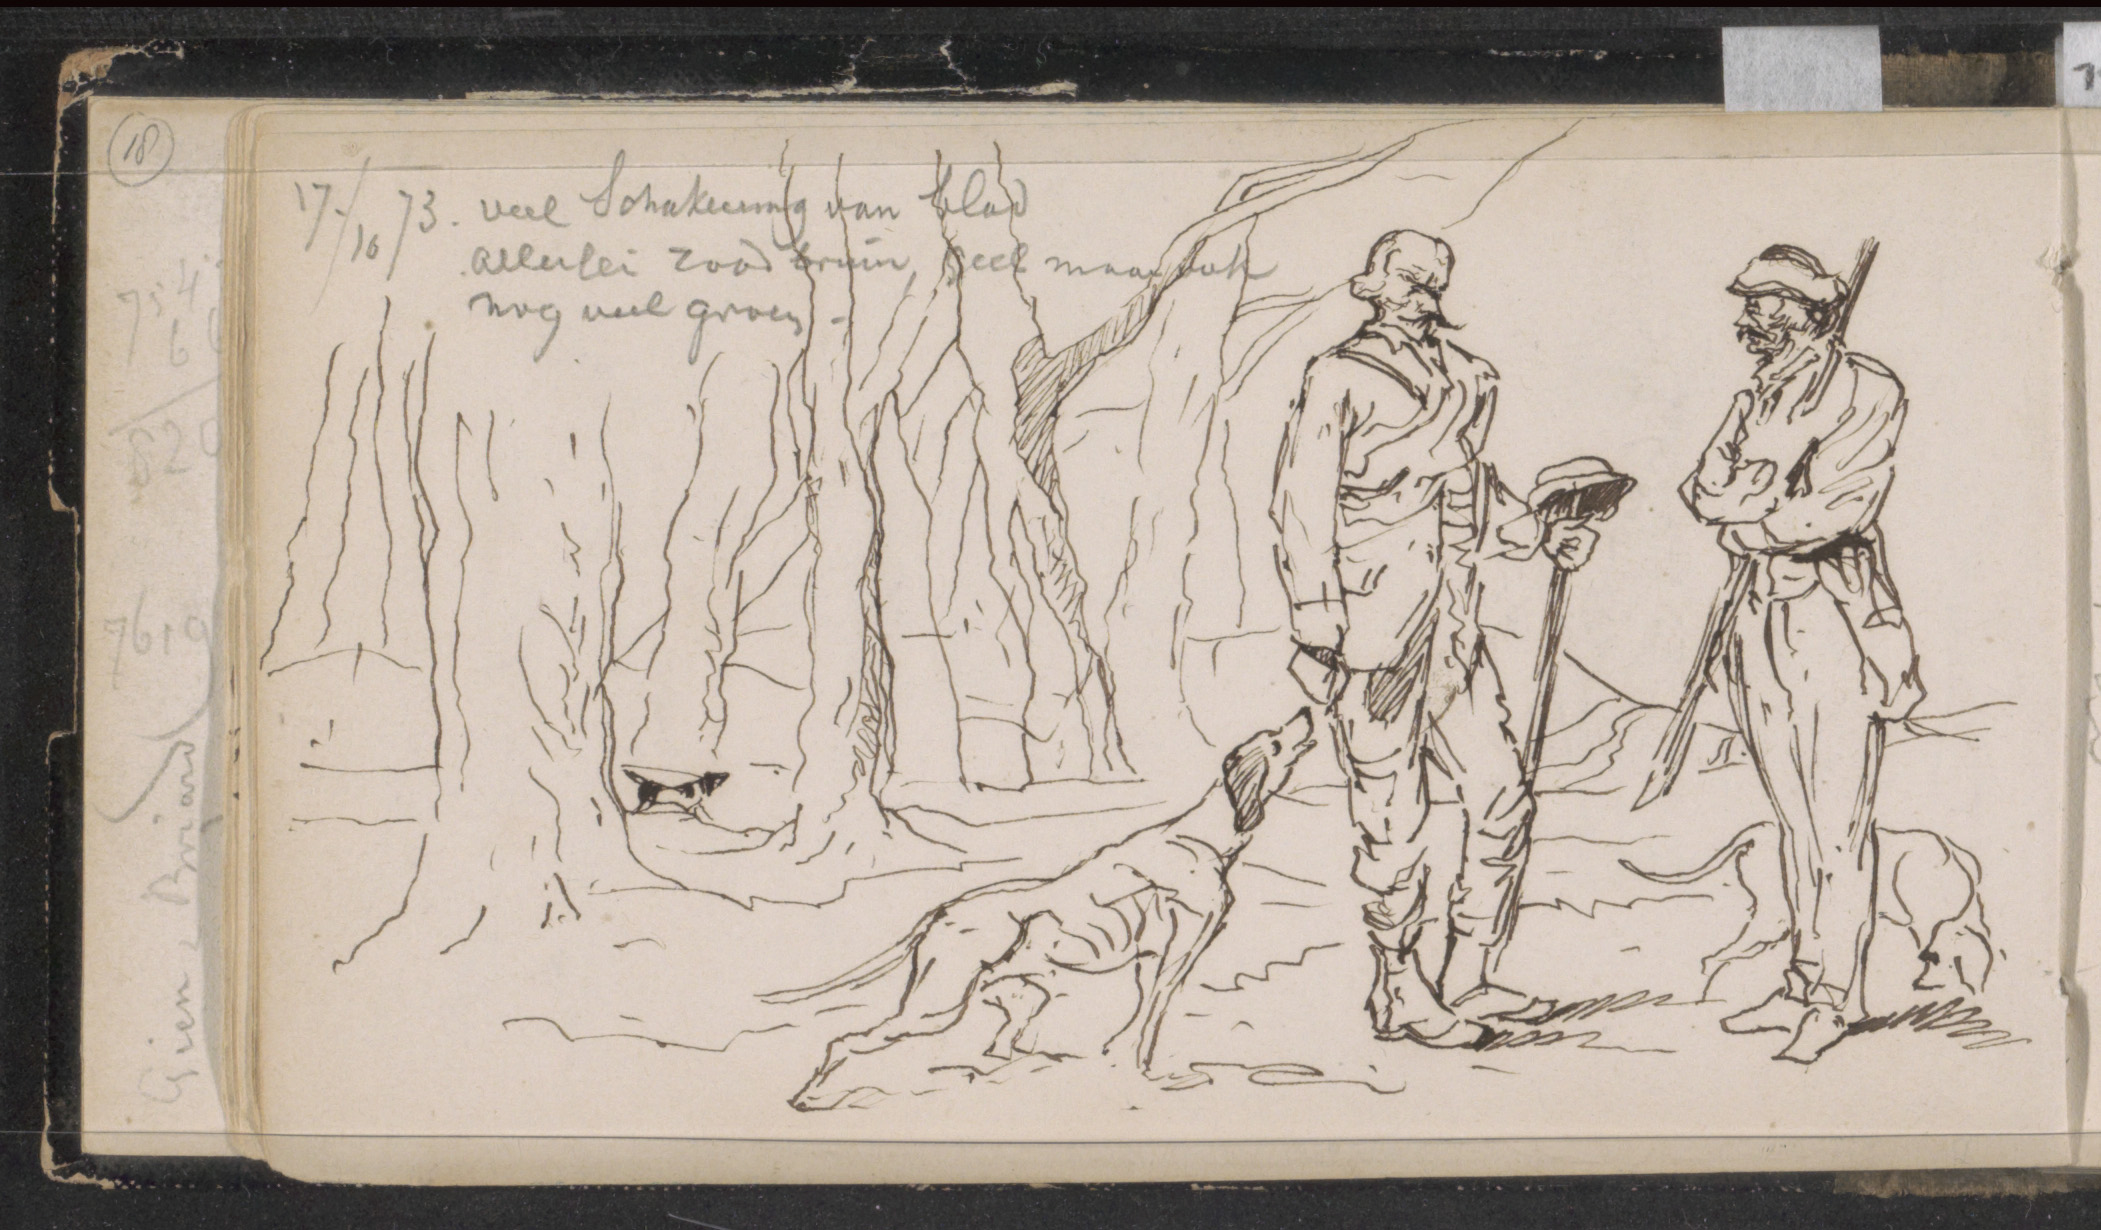 18
17/10/73. veel Schakeering van blad
allerlei rood bruin, geel maar ook
nog veel groen -
754
76,9
Gien, Briard